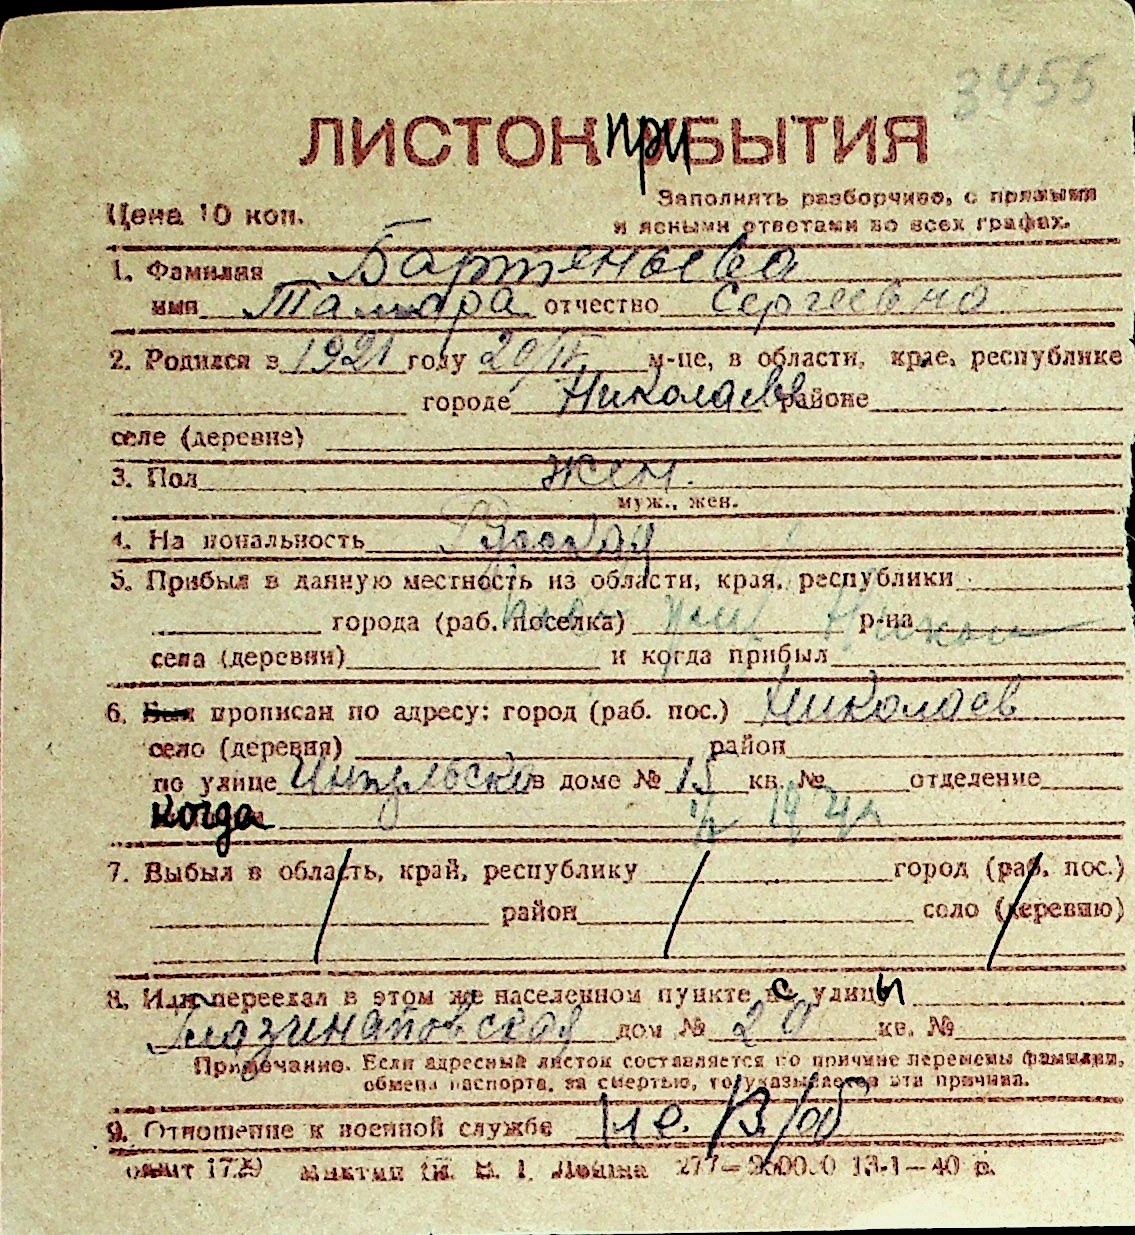 3455
ЛИСТОК ПРИБЫТИЯ
Цена 10 коп.
Заполнять разборчиво, с прямыми
и ясными ответами во всех графах.
1. Фамилия Бартеньева
имя Тамара отчество Сергеевна
2. Родился в 1921 году 20/IV м-це, в области, крае, республике
городе Николаеве районе
селе (деревне)
3. Пол жен.
муж., жен.
4. Национальность Русская
5. Прибыл в данную местность из области, края, республики
города (раб. поселка) р-на
села (деревни) и когда прибыл
6. прописан по адресу: город (раб. пос.) Николаев
село (деревня) район
по улице Ингульской в доме № 15 кв. № отделение
когда
7. Выбыл в область, край, республику город (раб. пос.)
район село (деревню)
8. Или переехал в этом же населенном пункте с улицы
дом № 20 кв. №
Примечание. Если адресный листок составляется по причине перемены фамилии,
обмена паспорта, за смертью, то указывается эти причина.
9. Отношение к военной службе не в/об
277— 13-1—40 р.